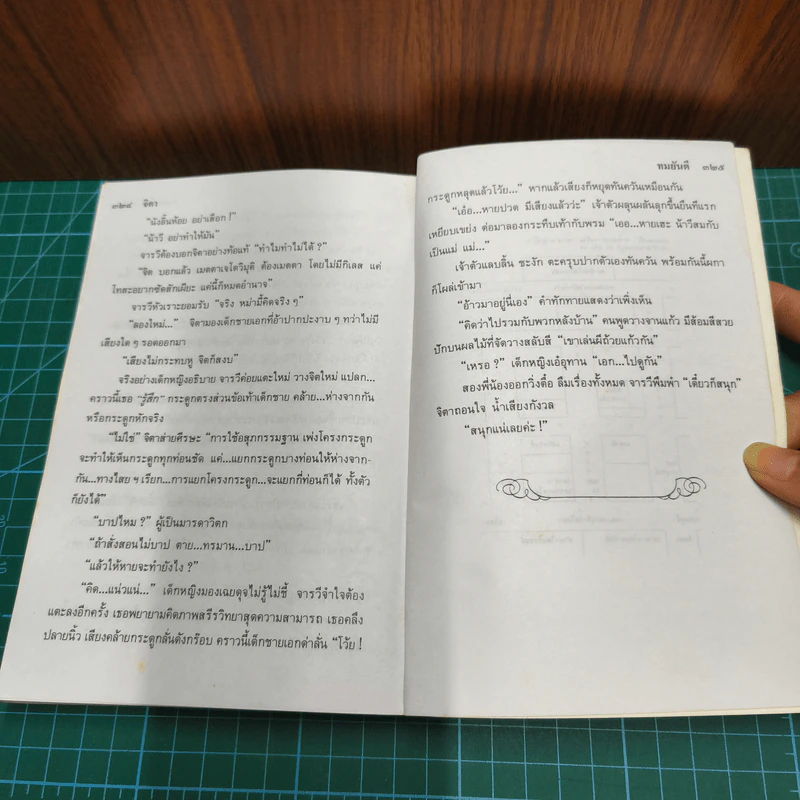 ๓๒๔ จิตา
"นังอิ้นห้อย อย่าเลือก !"
"น้าวี อย่าทำให้มัน"
จารวีต้องบอกจิตาอย่างท้อแท้ "ทำไมทำไม่ได้ ?"
"จิต บอกแล้ว เมตตาเจโตวิมุติ ต้องเมตตา โดยไม่มีกิเลส แค่
โทสะอยากซัดสักเผียะ แค่นี้ก็หมดอำนาจ"
จารวีหัวเราะยอมรับ "จริง หม่ามี้คิดจริง ๆ"
"ลองใหม่..." จิตามองเด็กชายเอกที่อ้าปากปะงาบ ๆ ทว่าไม่มี
เสียงใด ๆ รอดออกมา
"เสียงไม่กระทบหู จิตก็สงบ"
จริงอย่างเด็กหญิงอธิบาย จารวีค่อยแตะใหม่ วางจิตใหม่ แปลก...
คราวนี้เธอ "รู้สึก" กระดูกตรงส่วนข้อเท้าเด็กชาย คล้าย...ห่างจากกัน
หรือกระดูกหักจริง
"ไม่ใช่" จิตาส่ายศีรษะ "การใช้อสุภกรรมฐาน เพ่งโครงกระดูก
จะทำให้เห็นกระดูกทุกท่อนชัด แค่...แยกกระดูกบางท่อนให้ห่างจาก-
กัน...ทางไสย ฯ เรียก...การแยกโครงกระดูก...จะแยกกี่ท่อนก็ได้ ทั้งตัว
ก็ยังได้"
"บาปไหม ?" ผู้เป็นมารดาวิตก
"ถ้าสั่งสอนไม่บาป ตาย...ทรมาน...บาป"
"แล้วให้หายจะทำยังไง ?"
"คิด...แน่วแน่..." เด็กหญิงมองเฉยดุจไม่รู้ไม่ชี้ จารวีจำใจต้อง
แตะลงอีกครั้ง เธอพยายามคิดภาพสรีรวิทยาสุดความสามารถ เธอคลึง
ปลายนิ้ว เสียงคล้ายกระดูกลั่นดังกร๊อบ คราวนี้เด็กชายเอกด่าลั่น "โว้ย !
ทมยันตี ๓๒๕
กระดูกหลุดแล้วโว้ย..." หากแล้วเสียงก็หยุดทันควันเหมือนกัน
"เอ๋อ...หายปวด มีเสียงแล้วว่ะ" เจ้าตัวผลุนผลันลุกขึ้นยืนทีแรก
เหยียบเขย่ง ต่อมาลองกระทืบเท้ากับพรม "เออ...หายเฮะ น้าวีสมกับ
เป็นแม่ แม่..."
เจ้าตัวแลบลิ้น ชะงัก ตะครุบปากตัวเองทันควัน พร้อมกันนี้ผกา
ก็โผล่เข้ามา
"อ้าวมาอยู่นี่เอง" คำทักทายแสดงว่าเพิ่งเห็น
"คิดว่าไปรวมกับพวกหลังบ้าน" คนพูดวางจานแก้ว มีส้อมสีสวย
ปักบนผลไม้ที่จัดวางสลับสี "เขาเล่นผีถ้วยแก้วกัน"
"เหรอ ?" เด็กหญิงเอ๋อุทาน "เอก...ไปดูกัน"
สองพี่น้องออกวิ่งตื๋อ ลืมเรื่องทั้งหมด จารวีพึมพำ "เดี๋ยวก็สนุก"
จิตาถอนใจ น้ำเสียงกังวล
"สนุกแน่เลยค่ะ !"